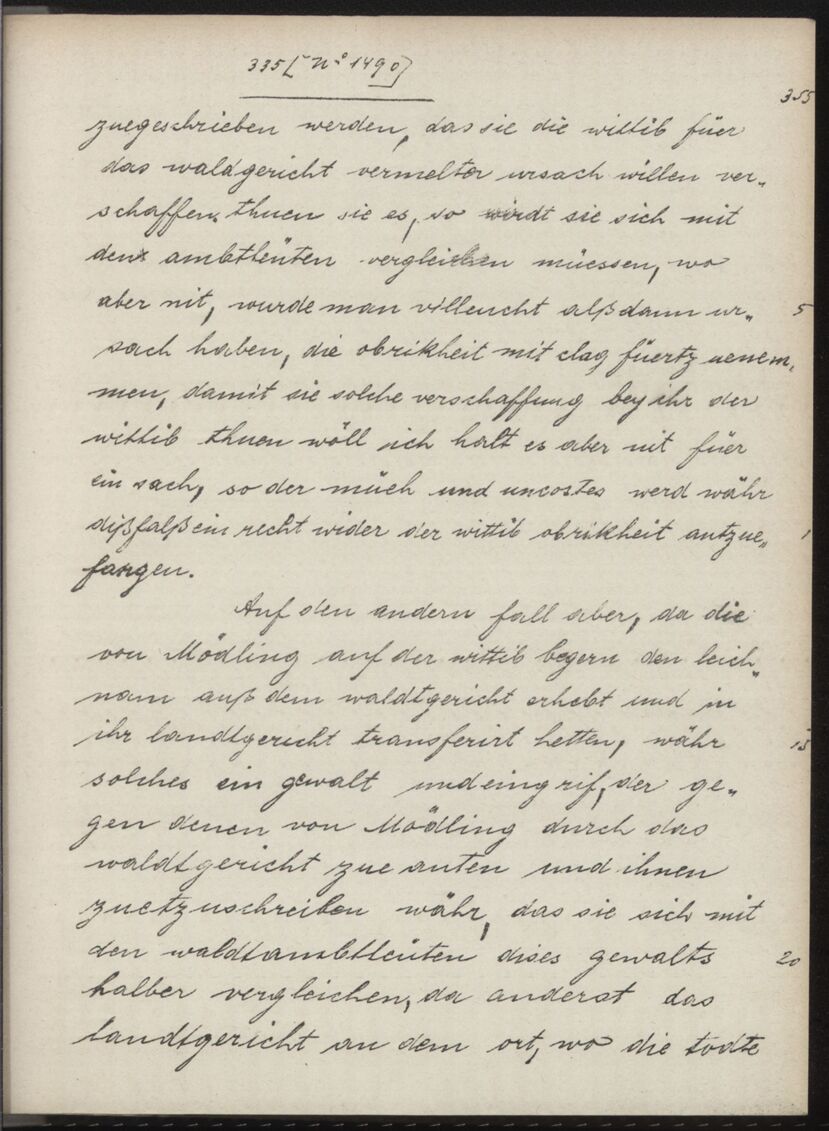 335 [N° 1490]
355
zuegeschrieben werden, das sie die wittib füer
das waldgericht vermelter ursach willen ver„
schaffen. thuen sie es, so wirdt sie sich mit
den ambtleüten vergleichen müessen, wo
aber nit, wurde man villeucht alßdann ur„ 5
sach haben, die obrikheit mit clag füertzuenem„
men, damit sie solche verschaffung bey ihr der
wittib thuen wöll ich halt es aber nit füer
ein sach, so der müeh und uncostes werd währ
dißfalß ein recht wider der wittib obrikheit antzue„ 1
fangen.
Auf den andern fall aber, da die
von Mödling auf der wittib begern den leich„
nam auß dem waldtgericht erhebt und in
ihr landtgericht transferirt hetten, währ 15
solches ein gewalt und eingrif, der ge„
gen denen von Mödling durch das
waldtgericht zue anten und ihnen
zuetzuschreiben währ, das sie sich mit
den waldtambtleüten dises gewalts 20
halber vergleichen, da anderst das
landtgericht an dem ort, wo die todte